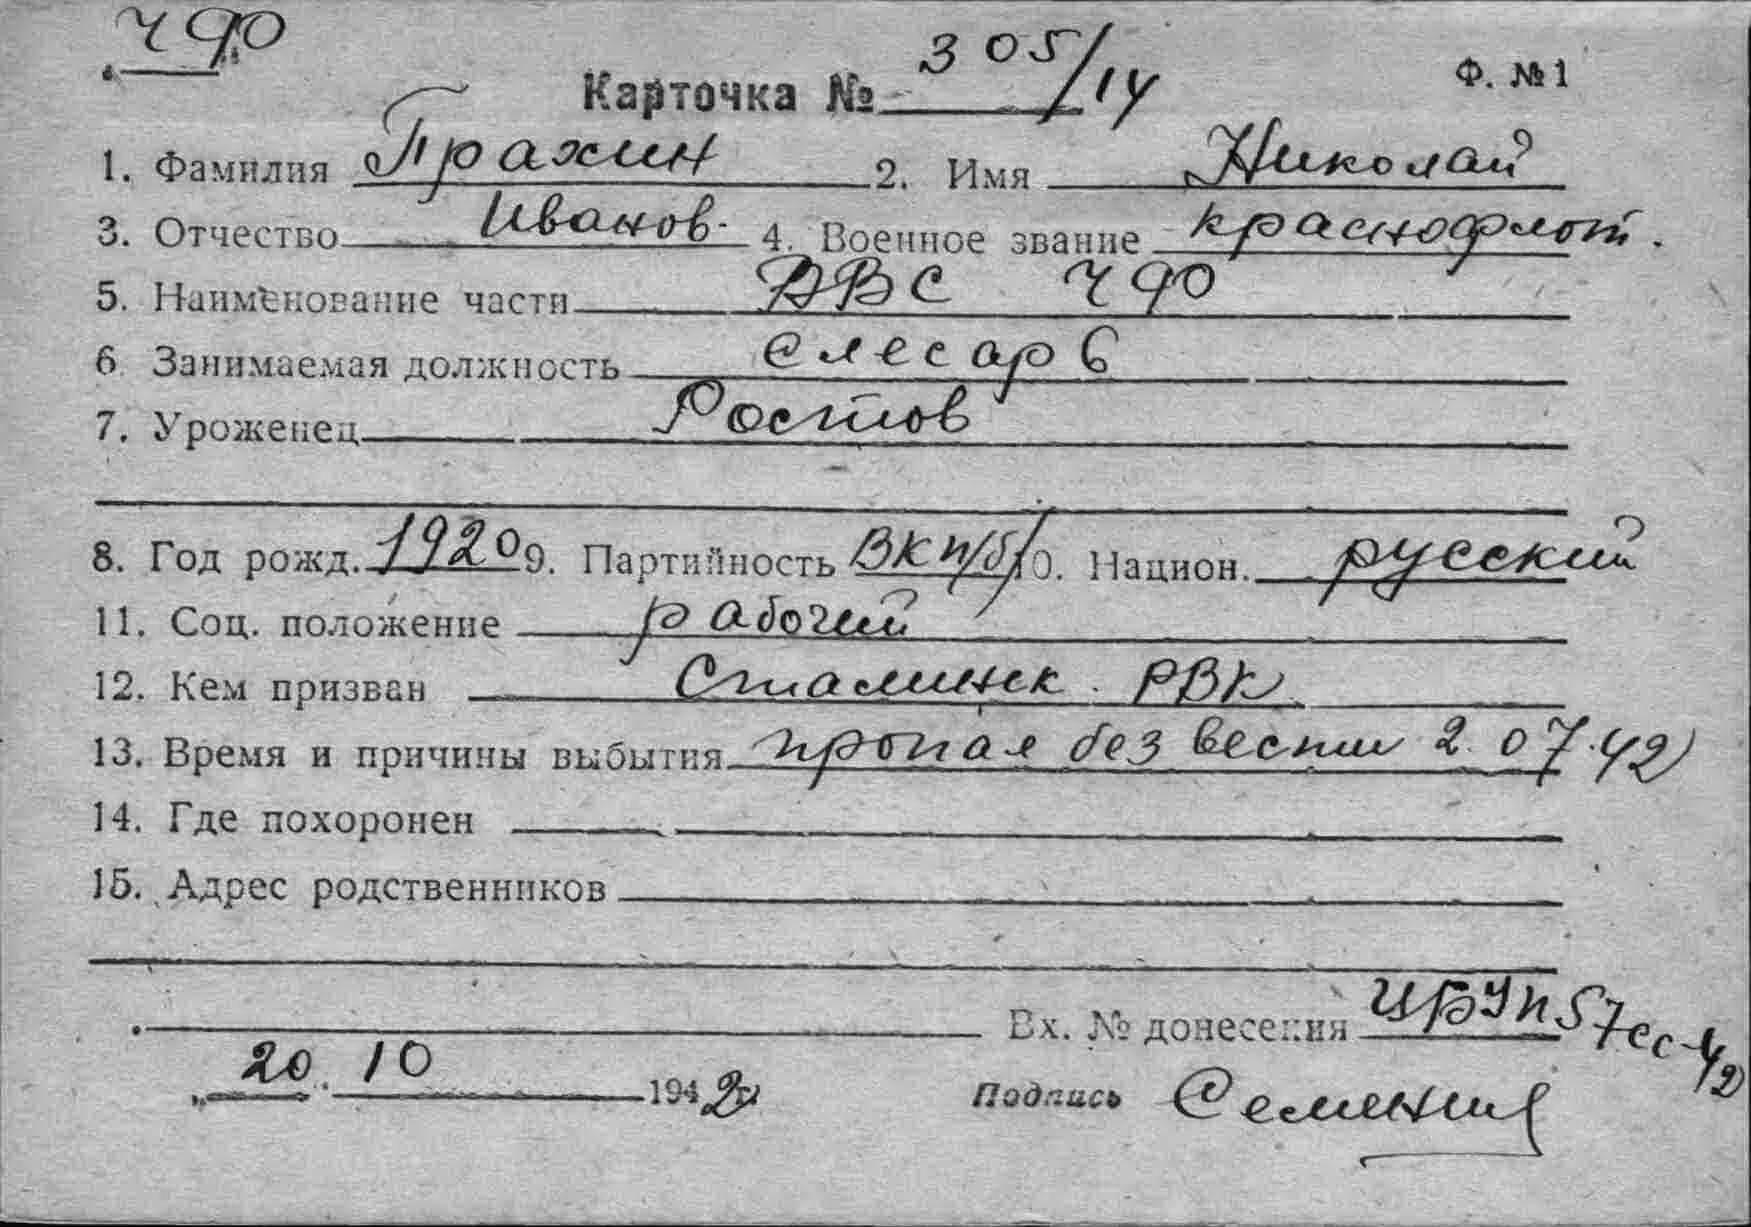 ЧФ
Карточка № 305/14 Ф. №1
1. Фамилия Прахин 2. Имя Николай
3. Отчество Иванов. 4. Военное звание краснофлот.
5. Наименование части ВВС ЧФ
6 Занимаемая должность слесарь
7. Уроженец Ростов
8. Год рожд. 1920 9. Партийность ВКП/б/ 10. Национ. русский
11. Соц. положение рабочий
12. Кем призван Сталинск. РВК
13. Время и причины выбытия пропал без вести 2.07.42
14. Где похоронен
15. Адрес родственников
Вх. № донесения 57сс-42
20. 10 1942г
Подпись